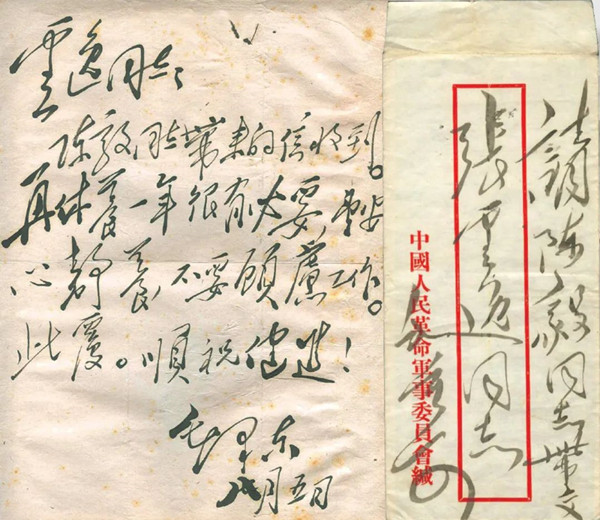 雲逸同志:
陳毅同志帶來的信收到。
再休養一年很有必要,望安
心靜養,不要顧慮工作。
此覆。順祝健進!
毛澤東
八月五日
請陳毅同志帶交
張雲逸同志
中國人民革命軍事委員會緘